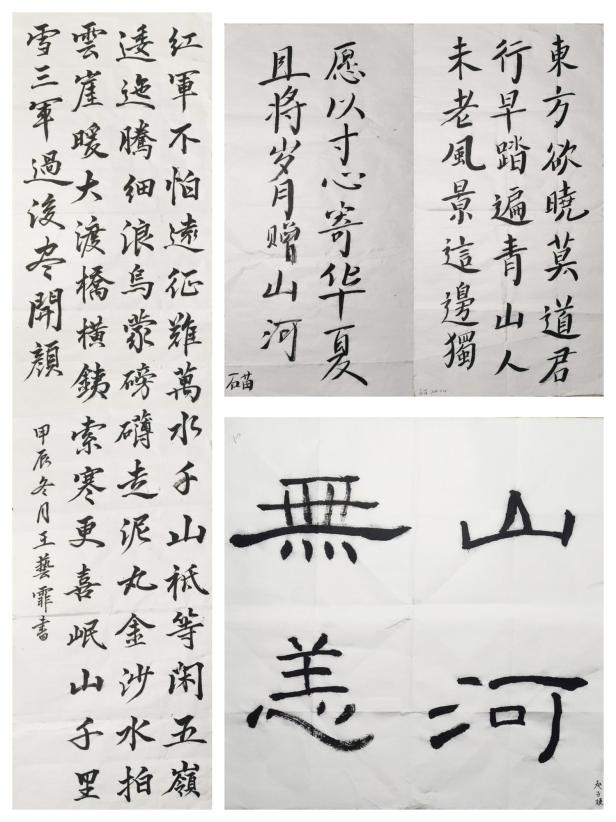 红軍不怕遠征難萬水千山祗等閑五嶺
逶迤騰細浪烏蒙磅礴走泥丸金沙水拍
雲崖暖大渡橋橫銕索寒更喜岷山千里
雪三軍過後尽開顏
甲辰冬月王藝霏書
東方欲曉莫道君
行早踏遍青山人
未老風景這邊獨
愿以寸心寄华夏
且将岁月赠山河
山河
無恙